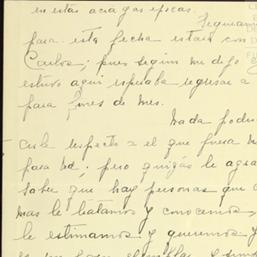 en estas aciagas epocas.
Seguram
para esta fecha estara con
Carlos; pues segun me dijo
estuvo aqui esperaba regresar a
para fines de mes.
Nada podre
cirle respecto a el que fuera n
para Ud. pero quizás le agra
saber que hay personas que c
mas le tratamos y conocemos,
le estimamos y queremos y